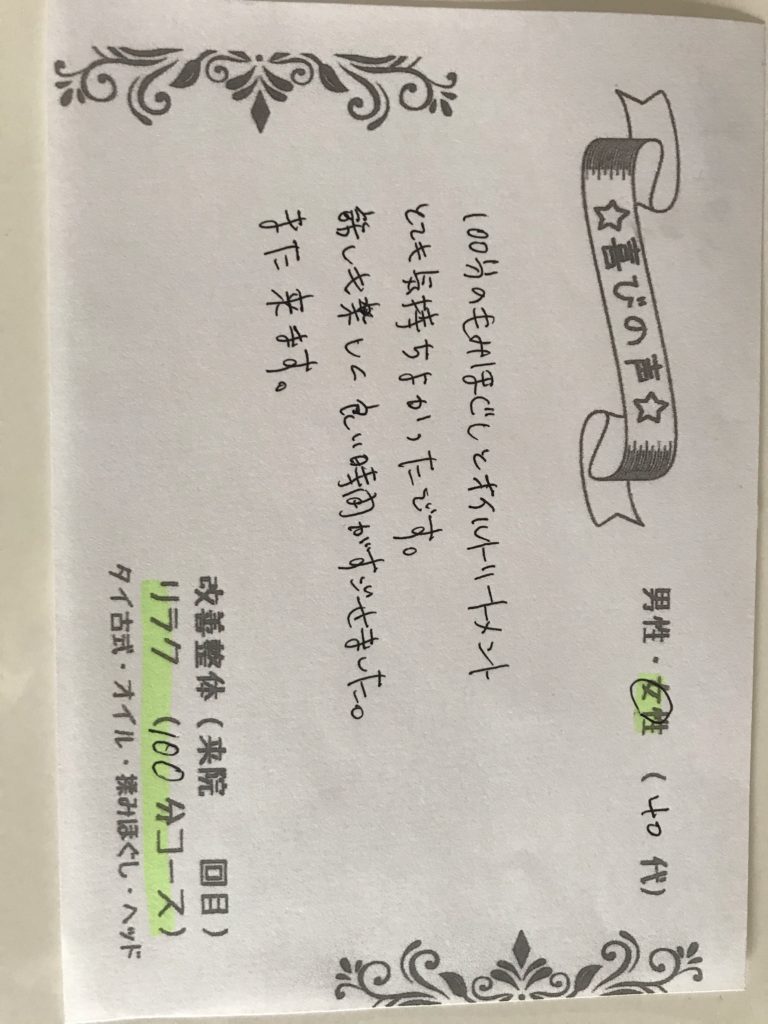 ☆喜びの声☆
男性・女性 (40 代)
100分のもみほぐしとオイルトリートメント
とても気持ちよかったです。
話しも楽しく良い時間がすごせました。
また来ます。
改善整体(来院 回目)
リラク (100分コース)
タイ古式・オイル・揉みほぐし・ヘッド